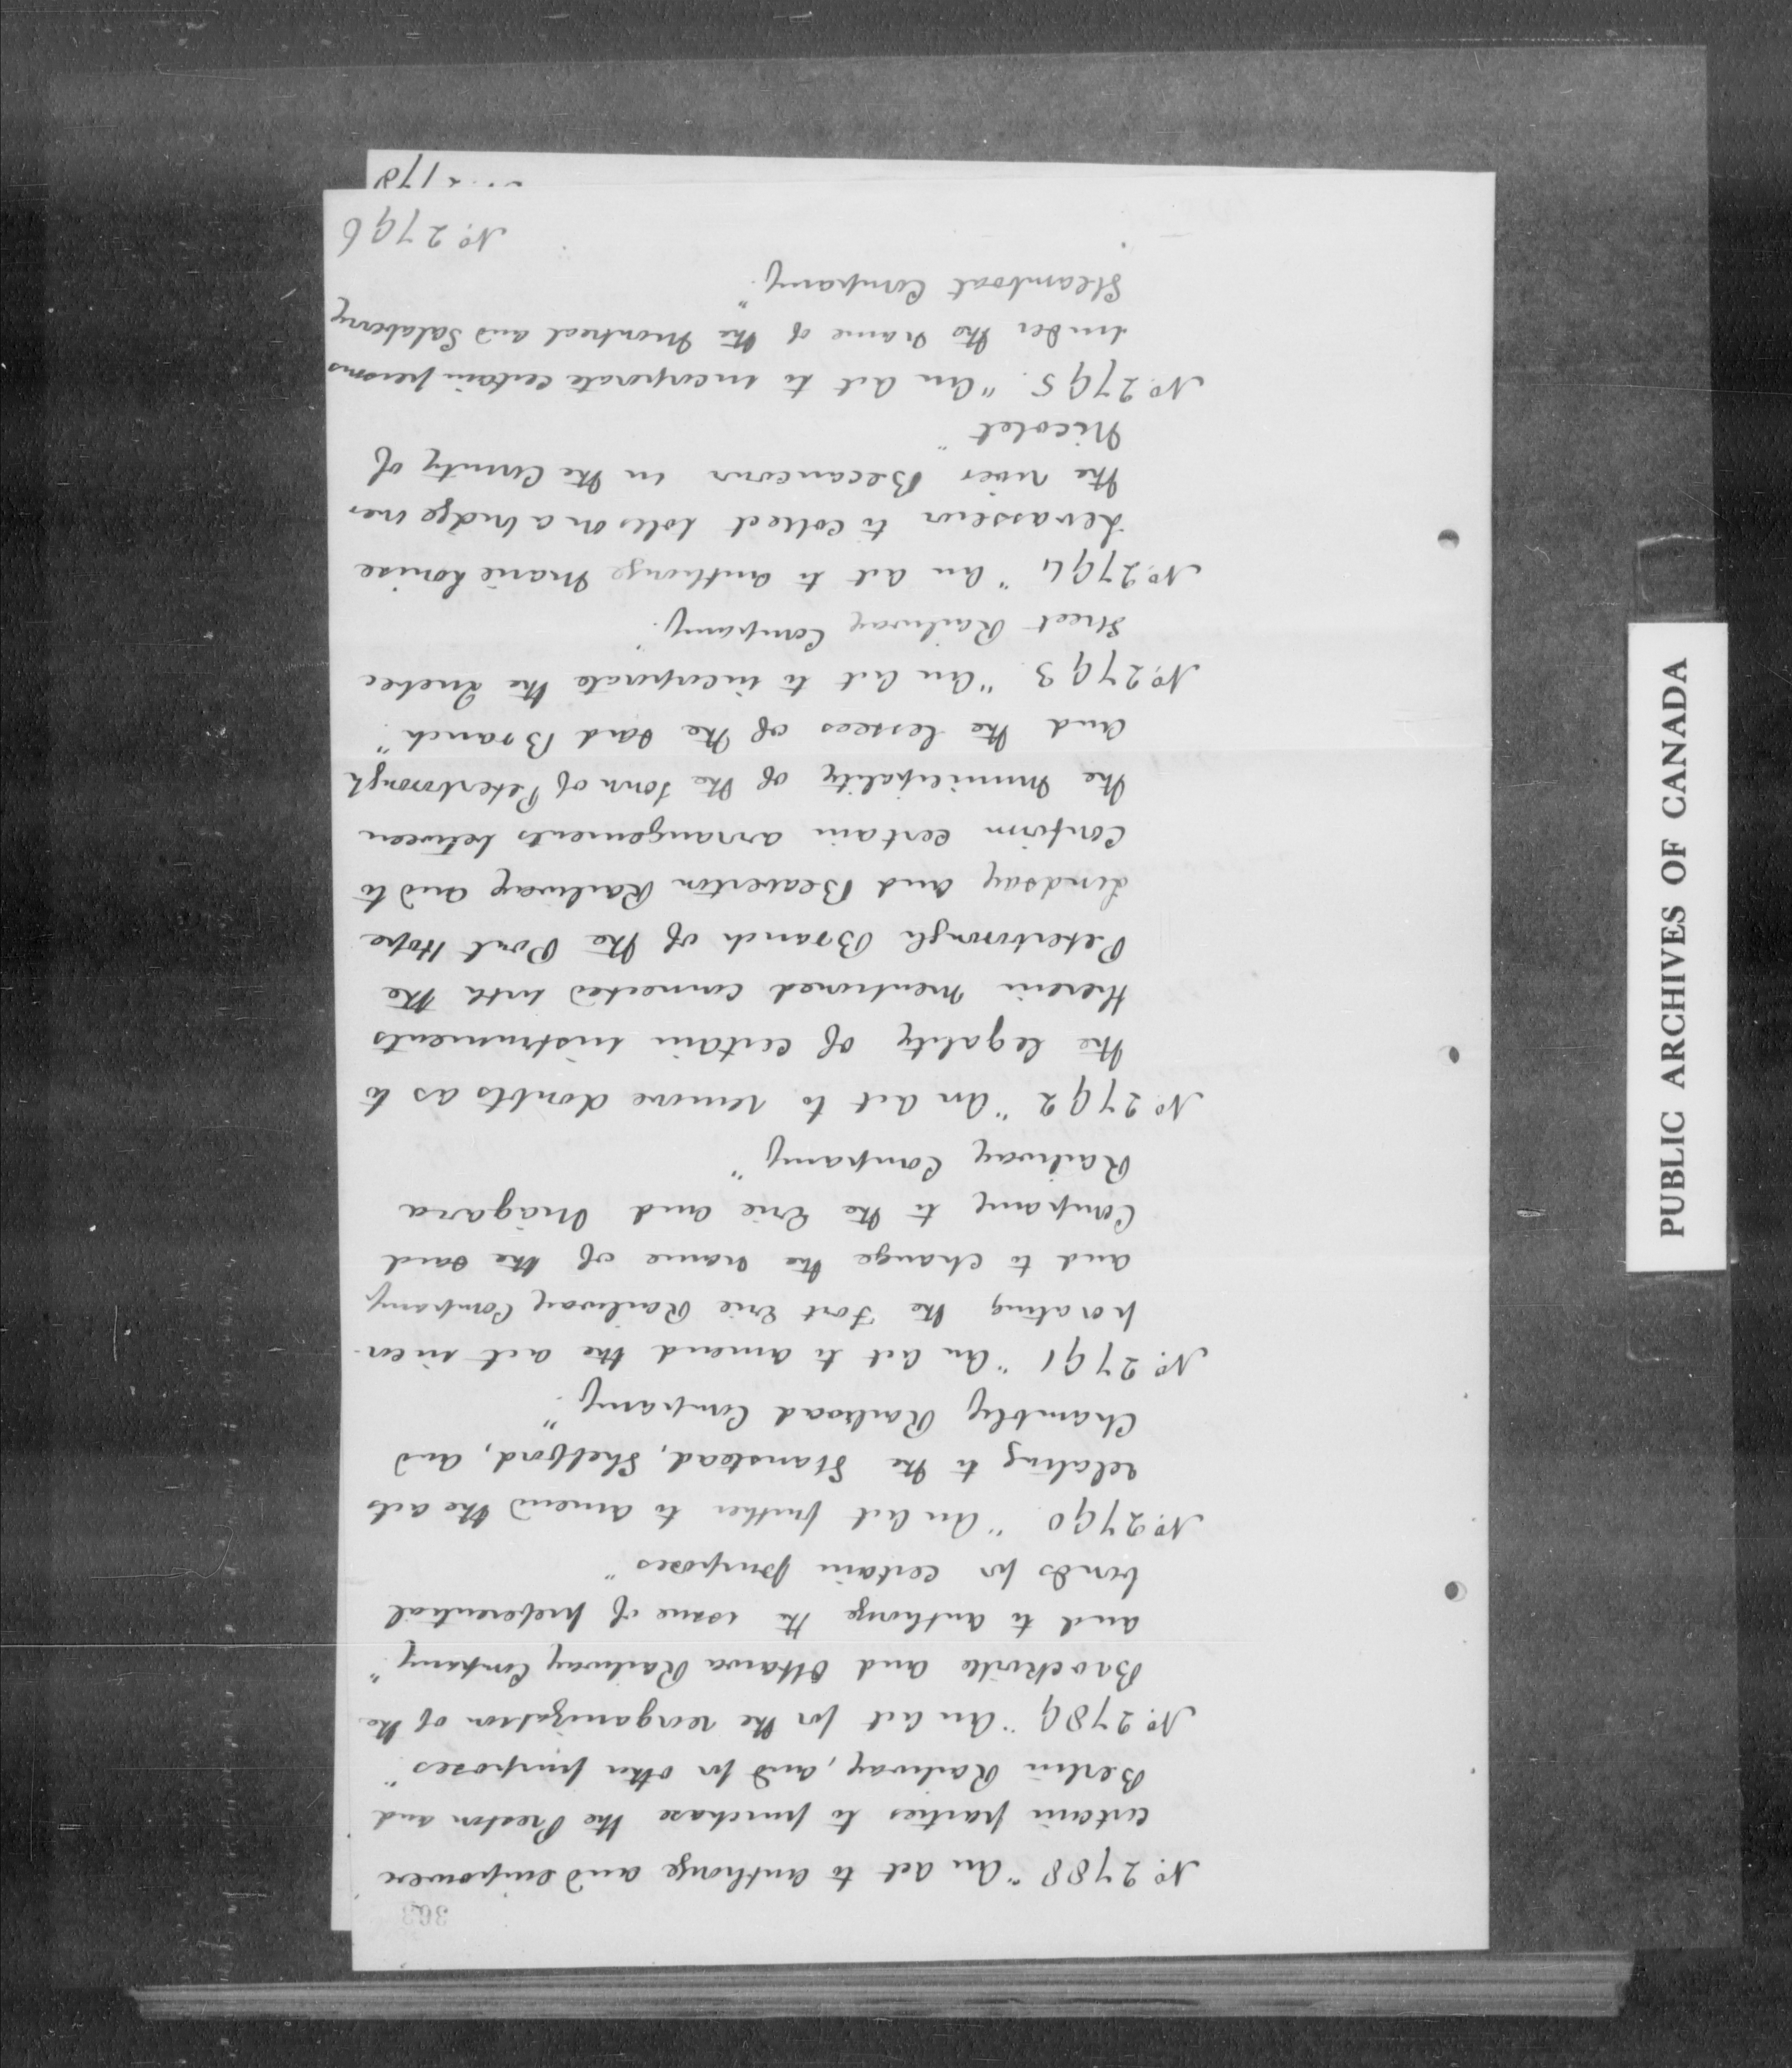 363
No. 2788 "An Act to authorize and empower
certain parties to purchase the Preston and
Berlin Railway, and for other purposes"
No. 2789 "An Act for the reorganization of the
Brockville and Ottawa Railway Company"
and to authorize the issue of preferential
bonds for certain purposes"
No. 2790. "An Act further to amend the acts
relating to the Stanstead, Shefford, and
Chambly Railroad Company."
No. 2791 "An Act to amend the act incor-
porating the Fort Erie Railway Company
and to change the name of the said
Company to the Erie and Niagara
Railway Company"
No. 2792 "An Act to remove doubts as to
the legality of certain instruments
therein mentioned connected with the
Peterborough Branch of the Port Hope
Lindsay and Beaverton Railway and to
confirm certain arrangements between
the Municipality of the Town of Peterborough
and the lessees of the said Branch."
No. 2793. "An Act to incorporate the Quebec
Street Railway Company."
No. 2794 "An Act to authorize Marie Louise
Levasseur to collect tolls on a bridge over
the river Becancour in the County of
Nicolet"
No. 2795. "An Act to incorporate certain persons
under the name of the Montreal and Salaberry
Steamboat Company."
No. 2796
PUBLIC ARCHIVES OF CANADA